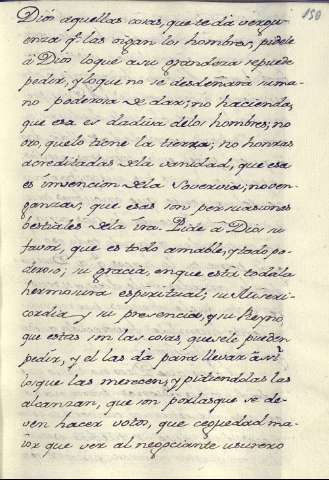 150
Dios aquellas cosas, que te da vergu-
enza q.e las oigan los hombres, pidele
â Dios loque asu grandeza sepuede
pedir, y loque no se desdeñará suma-
no poderosa de dar; no hacienda,
que esa es dadiva delos hombres; no
oro, quelo tiene la tierra; no honras
acreditadas dela vanidad, que esa
es invencion dela Sovervia; no ven-
ganzas, que esas son persuasiones
bestiales dela îra. Pide a Dios su
favor, que es todo amable, y todo po-
deroso; su gracia, enque està todala
hermosura espiritual; su Miseri-
cordia y su presencia, y su Reyno
que estas son las cosas, quesele pueden
pedir, y el las dà para llevar â sî
losque las merecen, y pidiendolas las
alcanzan, que son porlasque se de-
ven hacer votos, que ceguedad ma-
ior que ver al negociante usurero